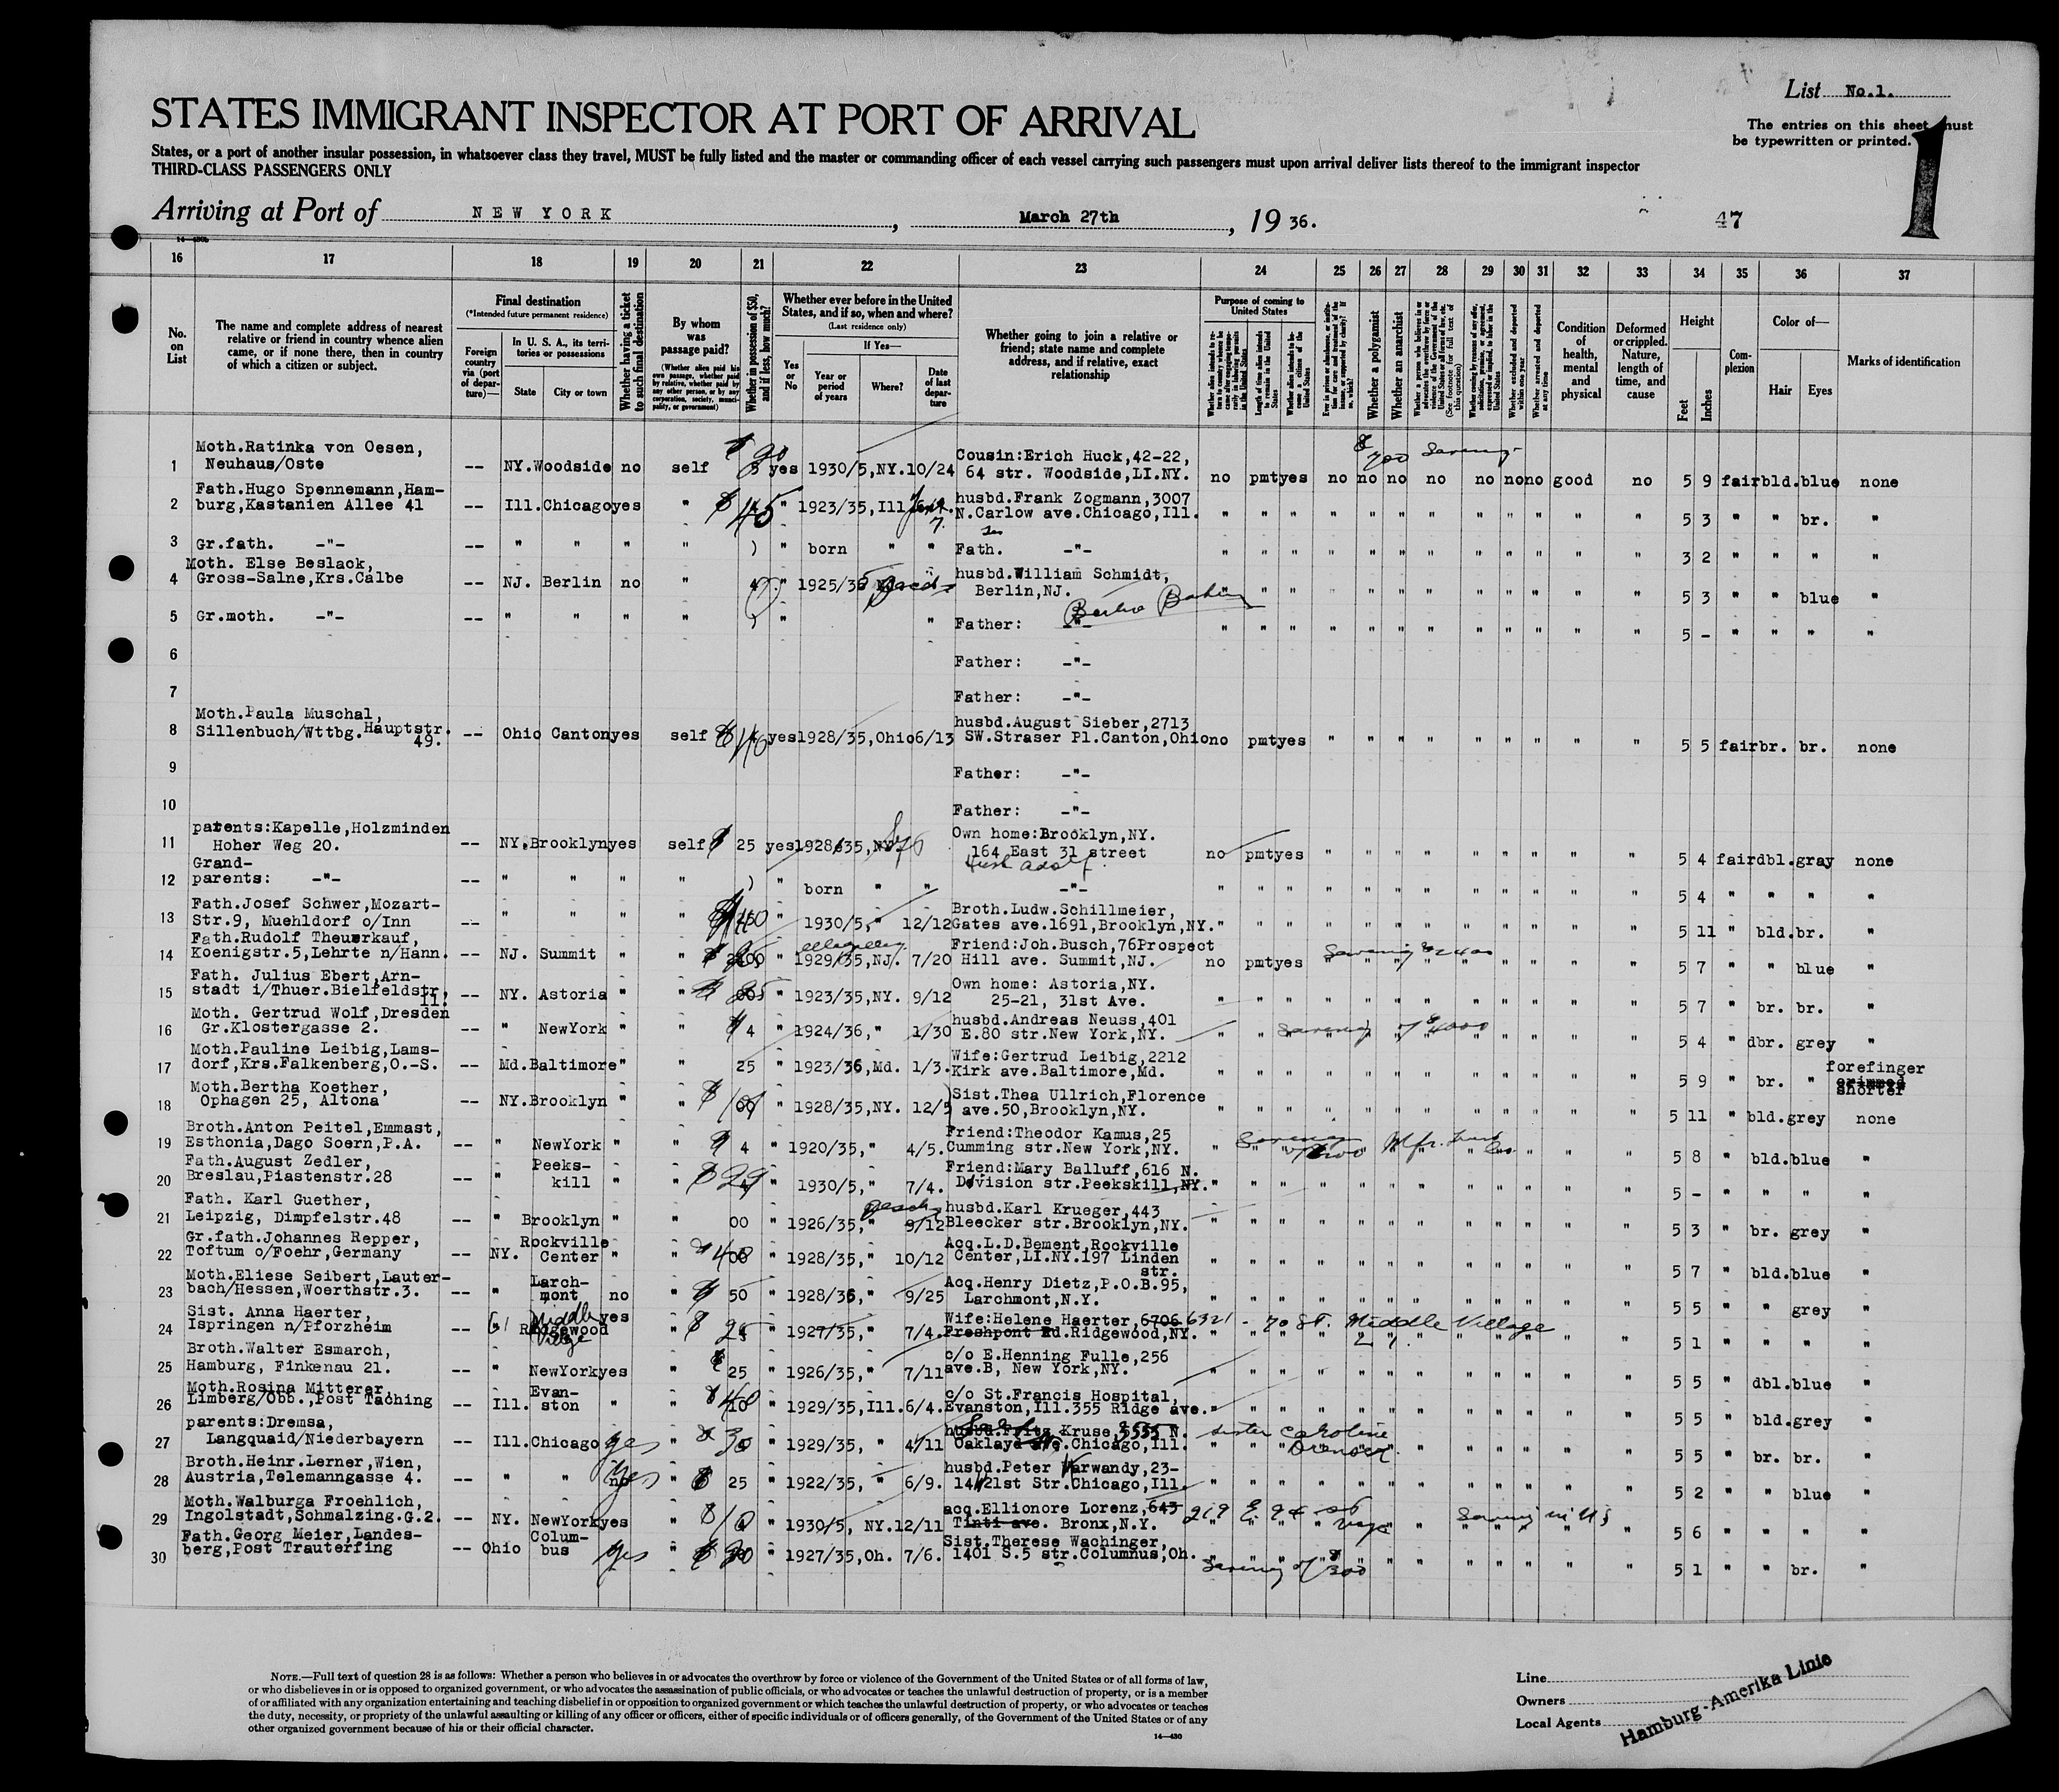 List No.1.
STATES IMMIGRANT INSPECTOR AT PORT OF ARRIVAL
The entries on this sheet must
be typewritten or printed.
1
States, or a port of another insular possession, in whatsoever class they travel, MUST be fully listed and the master or commanding officer of each vessel carrying such passengers must upon arrival deliver lists thereof to the immigrant inspector
THIRD-CLASS PASSENGERS ONLY
Arriving at Port of NEW YORK, March 27th, 1936.
47
16 17 18 19 20 21 22 23 24 25 26 27 28 29 30 31 32 33 34 35 36 37
No. on List
The name and complete address of nearest relative or friend in country whence alien came, or if none there, then in country of which a citizen or subject.
Final destination
(*Intended future permanent residence)
Foreign country via (port of departure)—
In U. S. A., its territories or possessions
State
City or town
Whether having a ticket to such final destination
By whom was passage paid?
(Whether alien paid his own passage, whether paid by relative, whether paid by any other person, or by any corporation, society, municipality, or government)
Whether in possession of $50, and if less, how much?
Whether ever before in the United States, and if so, when and where?
(Last residence only)
Yes or No
If Yes—
Year or period of years
Where?
Date of last departure
Whether going to join a relative or friend; state name and complete address, and if relative, exact relationship
Purpose of coming to United States
Whether a polygamist
Whether an anarchist
Condition of health, mental and physical
Deformed or crippled. Nature, length of time, and cause
Height
Feet
Inches
Complexion
Color of—
Hair
Eyes
Marks of identification
$700 Savings
1 Moth.Ratinka von Oesen, Neuhaus/Oste -- NY.Woodside no self yes 1930/5,NY.10/24 Cousin:Erich Huck,42-22, 64 str. Woodside,LI.NY. no pmt yes no no no no no no no good no 5 9 fair bld. blue none
2 Fath.Hugo Spennemann,Hamburg,Kastanien Allee 41 -- Ill.Chicago yes " $45 " 1923/35,Ill husbd.Frank Zogmann,3007 N.Carlow ave.Chicago,Ill. " " " " " " " " " " " " 5 3 " " br. "
3 Gr.fath. -"- -- " " " " ) " born " " Fath. -"- " " " " " " " " " " " " 3 2 " " " "
4 Moth. Else Beslack, Gross-Salne,Krs.Calbe -- NJ. Berlin no " " 1925/36 husbd.William Schmidt, Berlin,NJ. " " " " " " " " " " " 5 3 " " blue "
5 Gr.moth. -"- -- " " " " ) " " Father: -"- " " " " " " " " " " " " 5 - " " " "
6 Father: -"-
7 Father: -"-
8 Moth.Paula Muschal, Sillenbuch/Wttbg.Hauptstr. 49. -- Ohio Canton yes self yes 1928/35,Ohio 6/13 husbd.August Sieber,2713 SW.Straser Pl.Canton,Ohio no pmt yes " " " " " " " " " 5 5 fair br. br. none
9 Father: -"-
10 Father: -"-
11 parents:Kapelle,Holzminden Hoher Weg 20. -- NY.Brooklyn yes self $ 25 yes 1928/35,NY Own home:Brooklyn,NY. 164 East 31 street no pmt yes " " " " " " " " " 5 4 fair dbl. gray none
12 Grandparents: -"- -- " " " " ) " born " " -"- " " " " " " " " " " " " 5 4 " " " "
13 Fath.Josef Schwer,Mozart-Str.9, Muehldorf o/Inn -- " " " " 1930/5, " 12/12 Broth.Ludw.Schillmeier, Gates ave.1691,Brooklyn,NY. " " " " " " " " " " " " 5 11 " bld. br. "
14 Fath.Rudolf Theuerkauf, Koenigstr.5,Lehrte n/Hann. -- NJ. Summit " " " 1929/35,NJ. 7/20 Friend:Joh.Busch,76Prospect Hill ave. Summit,NJ. no pmt yes Saving $2400 " " " " " " " " " 5 7 " " blue "
15 Fath. Julius Ebert,Arnstadt i/Thuer.Bielfeldstr. 11. -- NY. Astoria " " " 1923/35,NY. 9/12 Own home: Astoria,NY. 25-21, 31st Ave. " " " " " " " " " " " " 5 7 " br. br. "
16 Moth. Gertrud Wolf,Dresden Gr.Klostergasse 2. -- " NewYork " " $ 4 " 1924/36, " 1/30 husbd.Andreas Neuss,401 E.80 str.New York,NY. " Saving of $4000 " " " " " " 5 4 " dbr. grey "
17 Moth.Pauline Leibig,Lamsdorf,Krs.Falkenberg,O.-S. -- Md.Baltimore " " 25 " 1923/36,Md. 1/3. Wife:Gertrud Leibig,2212 Kirk ave.Baltimore,Md. " " " " " " " " " " " " 5 9 " br. " forefinger shorter
18 Moth.Bertha Koether, Ophagen 25, Altona -- NY.Brooklyn " " $ " 1928/35,NY. 12/5 Sist.Thea Ullrich,Florence ave.50,Brooklyn,NY. " " " " " " " " " " " " 5 11 " bld. grey none
19 Broth.Anton Peitel,Emmast, Esthonia,Dago Soern,P.A. -- " NewYork " " 4 " 1920/35, " 4/5. Friend:Theodor Kamus,25 Cumming str.New York,NY. " " " " " " " 5 8 " bld. blue "
20 Fath.August Zedler, Breslau,Piastenstr.28 -- " Peekskill " " $29 " 1930/5, " 7/4. Friend:Mary Balluff,616 N. Division str.Peekskill,NY. " " " " " " " " " " " " 5 - " " " "
21 Fath. Karl Guether, Leipzig, Dimpfelstr.48 -- " Brooklyn " " 00 " 1926/35, " 9/12 husbd.Karl Krueger,443 Bleecker str.Brooklyn,NY. " " " " " " " " " " " " 5 3 " br. grey "
22 Gr.fath.Johannes Repper, Toftum o/Foehr,Germany -- NY. Rockville Center " " " 1928/35, " 10/12 Acq.L.D.Bement,Rockville Center,LI.NY.197 Linden str. " " " " " " " " " " " " 5 7 " bld. blue "
23 Moth.Eliese Seibert,Lauterbach/Hessen,Woerthstr.3. -- " Larchmont no " $ 50 " 1928/36, " 9/25 Acq.Henry Dietz,P.O.B.95, Larchmont,N.Y. " " " " " " " " " " " " 5 5 " " grey "
24 Sist. Anna Haerter, Ispringen n/Pforzheim -- Ridgewood Middle Village yes " $ 25 " 1927/35, " 7/4. Wife:Helene Haerter,6706 Freshpont Rd.Ridgewood,NY. 6321 - 70 St. Middle Village L.I. " " " " 5 1 " " " "
25 Broth.Walter Esmarch, Hamburg, Finkenau 21. -- " NewYork yes " $ 25 " 1926/35, " 7/11 c/o E.Henning Fulle,256 ave.B, New York,NY. " " " " " " " " " " " " 5 5 " dbl. blue "
26 Moth.Rosina Mitterer, Limberg/Obb.,Post Taching -- Ill. Evanston " " " 1929/35,Ill.6/4. c/o St.Francis Hospital, Evanston,Ill.355 Ridge ave. " " " " " " " " " " " " 5 5 " bld. grey "
27 parents:Dremsa, Langquaid/Niederbayern -- Ill.Chicago yes " $ 30 " 1929/35, " 4/11 husbd.Fritz Kruse, 5555 N. Oaklayd ave.Chicago,Ill. sister Caroline " " " " " " " 5 5 " br. br. "
28 Broth.Heinr.Lerner,Wien, Austria,Telemanngasse 4. -- " " no yes " $ 25 " 1922/35, " 6/9. husbd.Peter Warwandy,23-14 21st Str.Chicago,Ill. " " " " " " " " " " " " 5 2 " " blue "
29 Moth.Walburga Froehlich, Ingolstadt,Schmalzing.G.2. -- NY. NewYork yes " " 1930/5, NY.12/11 acq.Ellionore Lorenz,643 Tinti ave. Bronx,N.Y. 219 E. 94 St Saving in US 5 6 " " " "
30 Fath.Georg Meier,Landesberg,Post Trauterfing -- Ohio Columbus yes " $ 30 " 1927/35,Oh. 7/6. Sist.Therese Wachinger, 1401 S.5 str.Columnus,Oh. Saving of $300 5 1 " " br. "
NOTE.—Full text of question 28 is as follows: Whether a person who believes in or advocates the overthrow by force or violence of the Government of the United States or of all forms of law,
or who disbelieves in or is opposed to organized government, or who advocates the assassination of public officials, or who advocates or teaches the unlawful destruction of property, or is a member
of or affiliated with any organization entertaining and teaching disbelief in or opposition to organized government or which teaches the unlawful destruction of property, or who advocates or teaches
the duty, necessity, or propriety of the unlawful assaulting or killing of any officer or officers, either of specific individuals or of officers generally, of the Government of the United States or of any
other organized government because of his or their official character.
14—430
Line
Owners
Local Agents
Hamburg-Amerika Linie